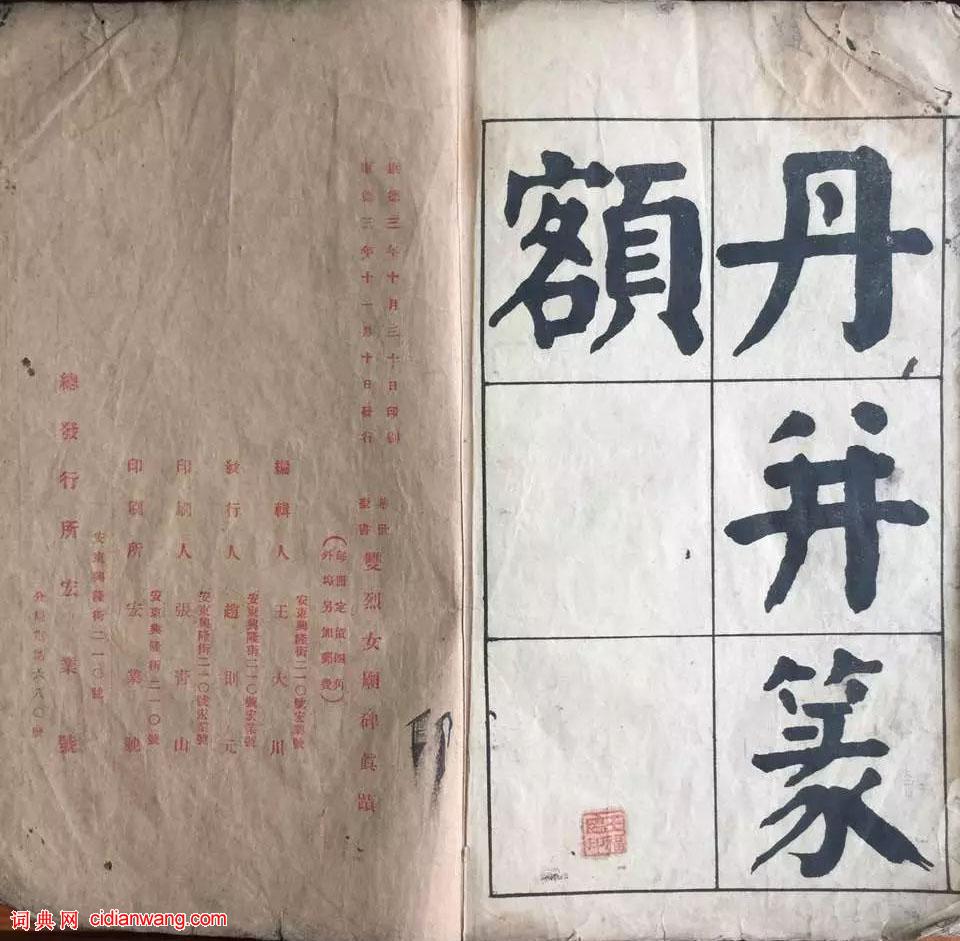 丹并篆
額
康德三年十月三十日印刷
康德三年十一月十日發行
雙烈女廟碑眞蹟
(每冊定價四角
外埠另加郵費)
安東興隆街二一〇號宏業號
編輯人 王大川
安東興隆街二一〇號宏業號
發行人 趙則元
安東興隆街二一〇號宏業號
印刷人 張山
安東興隆街二一〇號
印刷所 宏業號
安東興隆街二一〇號
總發行所宏業號
電話六八〇號
印
词典网 cidianwang.com